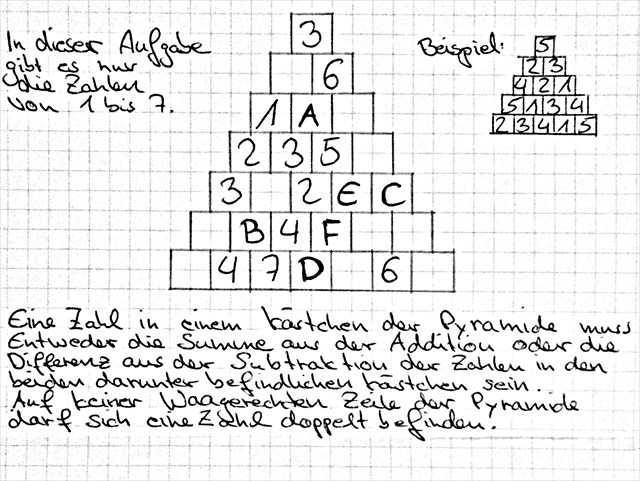 In dieser Aufgabe
gibt es nur
die Zahlen
von 1 bis 7.
3
6
1 A
2 3 5
3 2 E C
B 4 F
4 7 D 6
Beispiel:
5
2 3
4 2 1
5 1 3 4
2 3 4 1 5
Eine Zahl in einem Kästchen der Pyramide muss
Entweder die Summe aus der Addition oder die
Differenz aus der Subtraktion der Zahlen in den
beiden darunter befindlichen Kästchen sein.
Auf keiner Waagerechten Zeile der Pyramide
darf sich eine Zahl doppelt befinden.